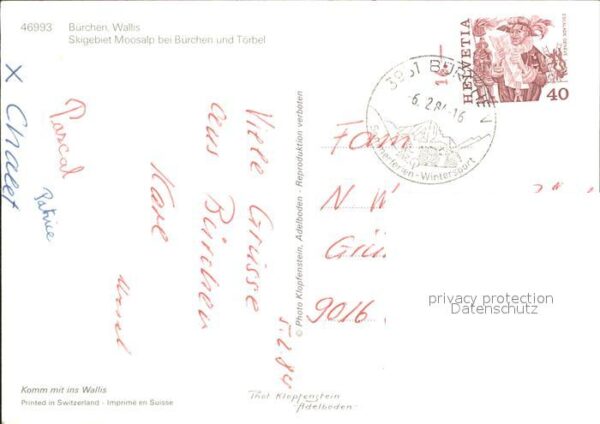 46993 Bürchen, Wallis
Skigebiet Moosalp bei Bürchen und Törbel
X Chalet
Pascal
Patrice
Viele Grüsse
aus Bürchen
5.2.84
© Photo Klopfenstein, Adelboden - Reproduktion verboten
HELVETIA
40
3951 BÜRCHEN
-6.2.84-16
Sommerferien-Wintersport
Fam
N W
Grü
9016
privacy protection
Datenschutz
Komm mit ins Wallis
Printed in Switzerland - Imprimé en Suisse
Thol Klopfenstein
-Adelboden-